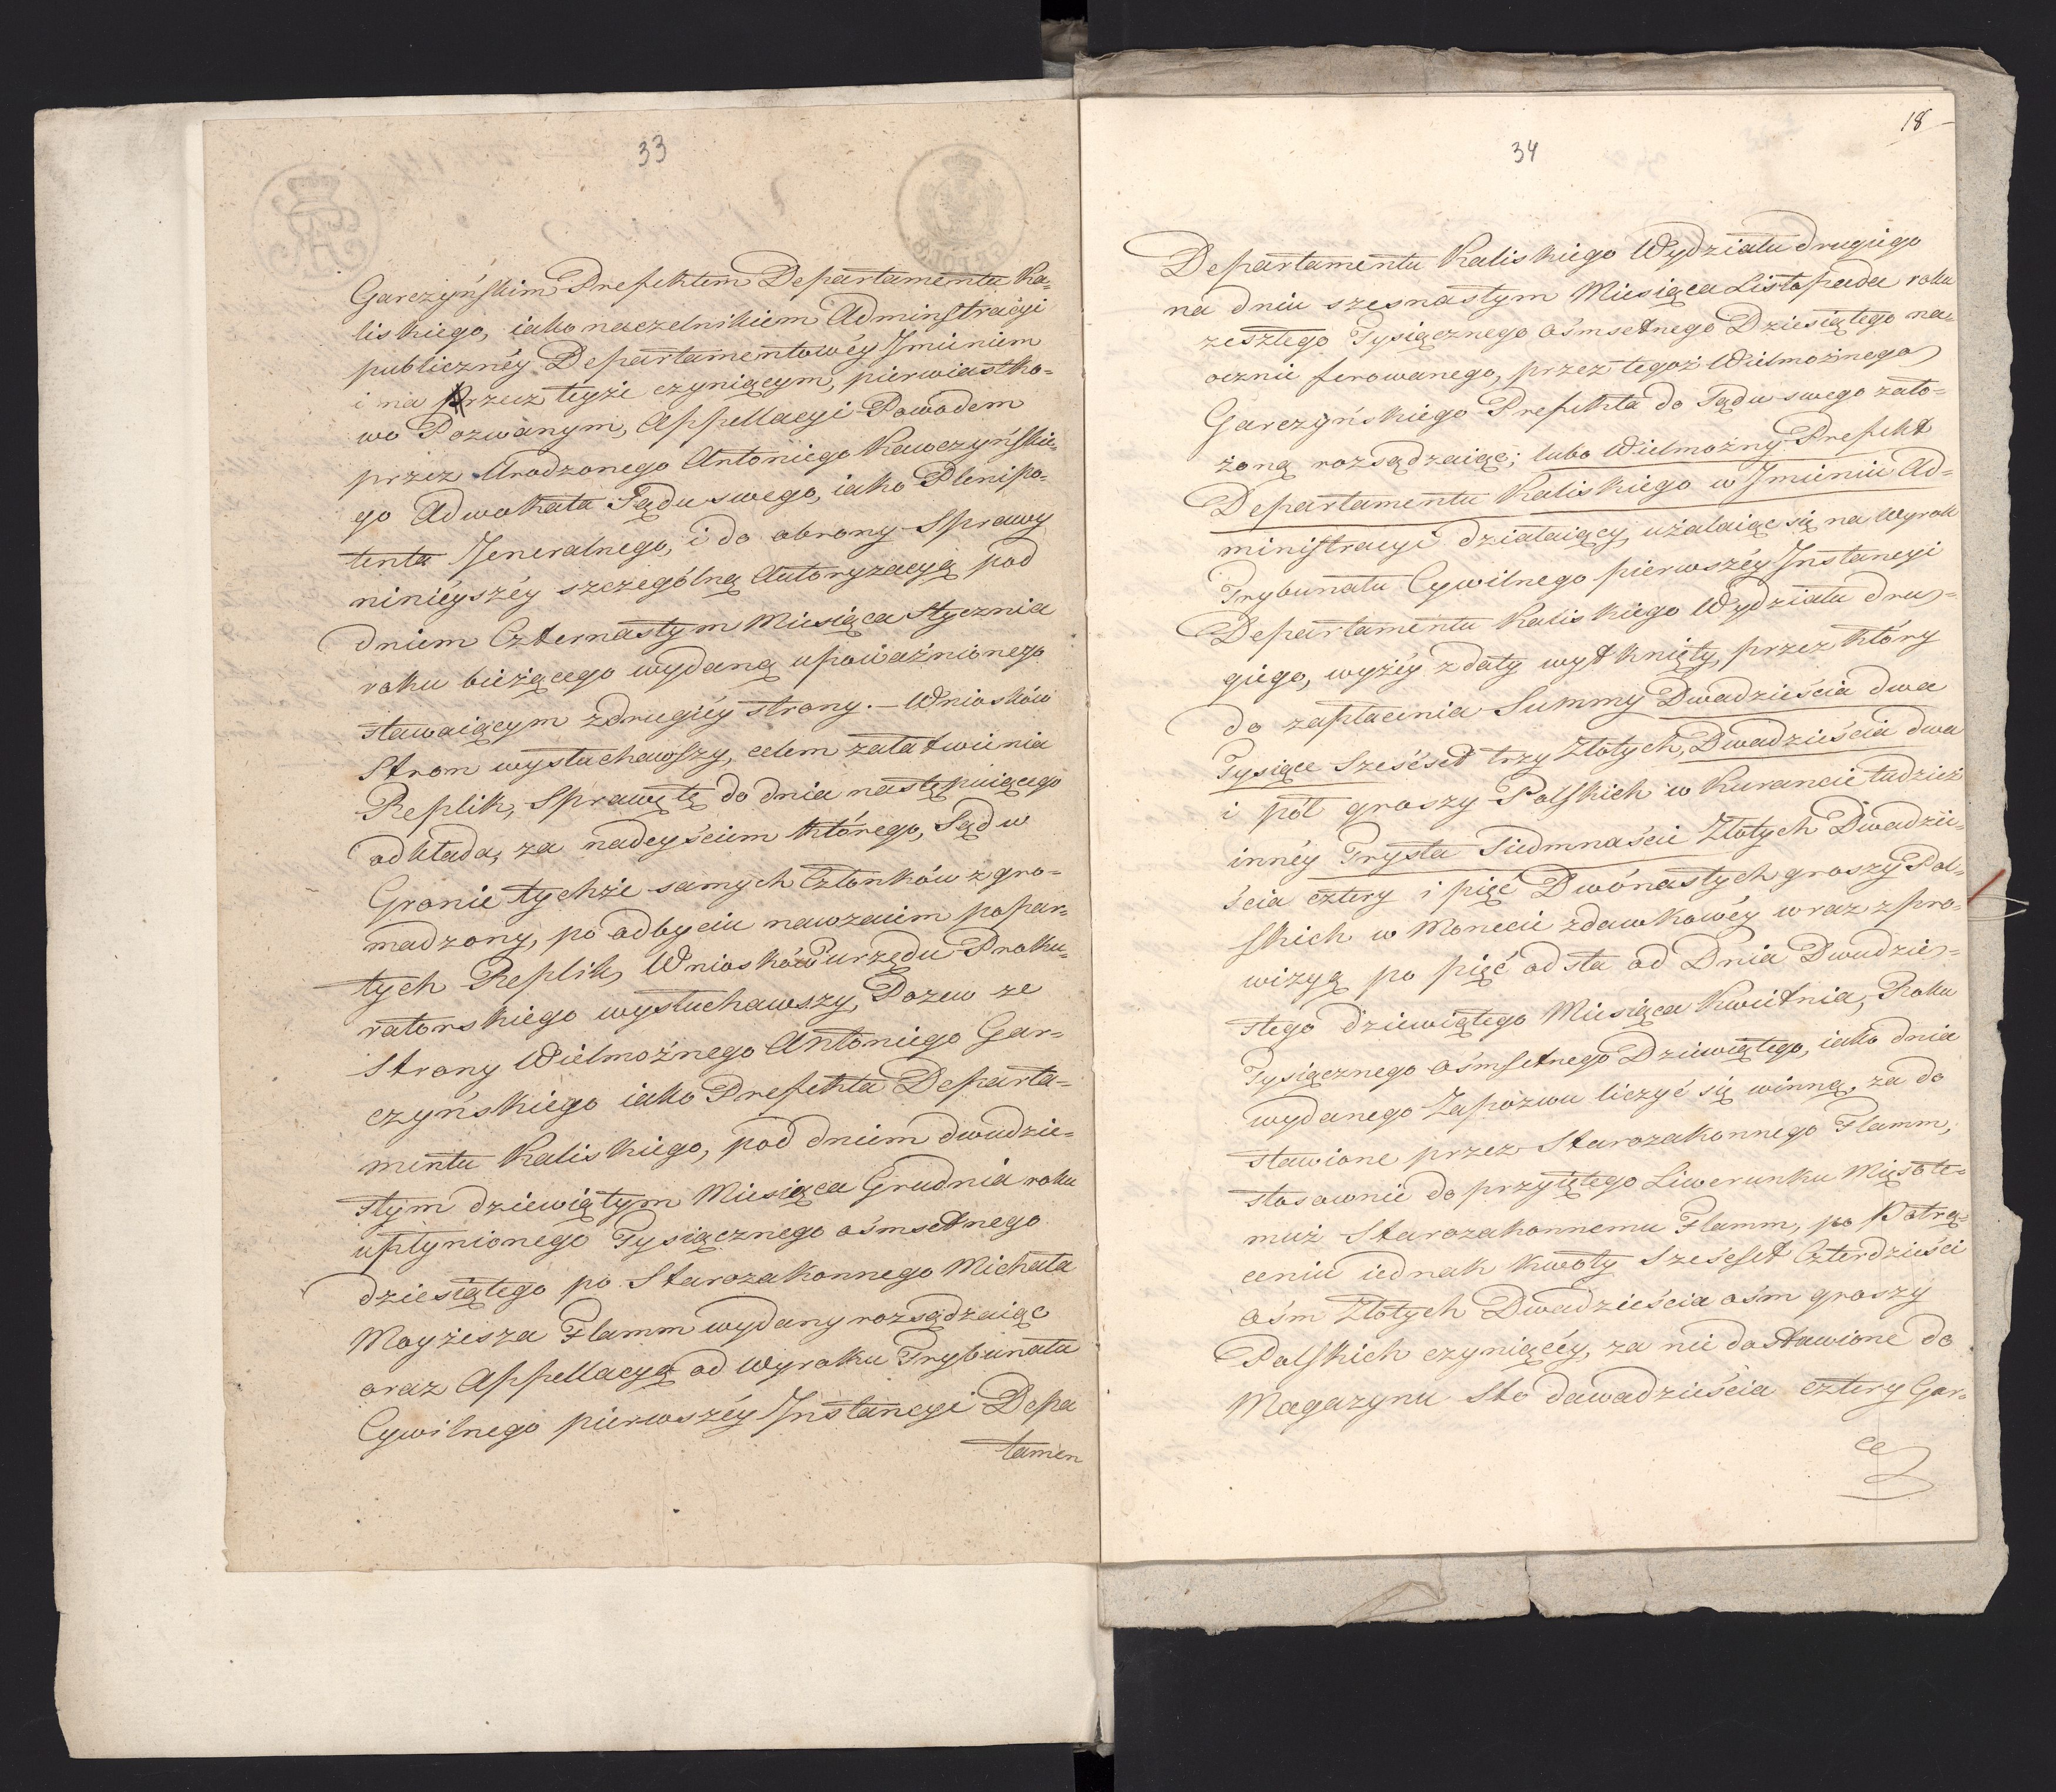 33
Garczyńskim Prefektem Departamentu Ka=
liskiego, iako naczelnikiem Adminstracyi
publicznéy Departamentowéy Jmieniem
i na przez téyże czyniącym, pierwiastko=
wo Pozwanym, Appellacyi Powodem
przez Urodzonego Antoniego Kawczyńskie=
go Adwokata Sądu swego, iako Plenipo=
tenta Jeneralnego, i do obrony Sprawy
ninieyszéy szczególną Autoryzacyą pod
dniem Czternastym Miesiąca Stycznia
roku bieżącego wydaną upoważnionego
stawaiącym z drugiéy strony. – Wniosków
Stron wysłuchawszy, celem załatwienia
Replik, Sprawę tę do dnia następuiącego
odkłada, za nadeyściem którego, Sąd w
Gronie tychże samych Członków zgro=
madzony, po odbyciu nawzaiem popar=
tych Replik, Wniosków urzędu Proku=
ratorskiego wysłuchawszy, Pozew ze
Strony Wielmożnego Antoniego Gar=
czyńskiego iako Prefekta Departa=
mentu Kaliskiego, pod dniem dwudzie=
stym dziewiątym Miesiąca Grudnia roku
upłynionego Tysiącznego ośmsetnego
dziesiątego po Starozakonnego Michała
Moyżesza Flamm wydany rozsądzaiąc
oraz Appellacyą od Wyroku Trybunału
Cywilnego pierwszéy Jnstancyi Depa
tamen
18
34
Departamentu Kaliskiego Wydziału drugiego
na dniu szesnastym Miesiąca Listopada roku
zeszłego Tysiącznego ośmsetnego Dziesiątego na=
ocznie ferowanego, przez tegoż Wielmożnego
Garczyńskiego Prefekta do Sądu swego zało=
żoną rozsądzaiąc; lubo Wielmożny Prefekt
Departamentu Kaliskiego w Jmieniu Ad=
ministracyi działaiący, użalaiąc się na Wyrok
Trybunału Cywilnego pierwszéy Jnstancyi
Departamentu Kaliskiego Wydziału dru=
giego, wyżéy z daty wytknięty, przez który
do zapłacenia Summy Dwadzieścia dwa
Tysiące Sześćset trzy Złotych, Dwadzieścia dwa
i pół groszy Polskich w Kurancie tudzież
innéy Trysta Siedmnaście Złotych Dwadzie=
ścia cztery i pięć Dwónastych groszy Pol=
skich w Monecie zdawkowéy wraz z pro=
wizyą po pięć od sta od Dnia Dwudzie=
stego dziewiątego Miesiąca Kwietnia, Roku
Tysiącznego ośmsetnego Dziewiątego, iako dnia
wydanego Zapozwu liczyć się winną, za do
stawione przez Starozakonnego Flamm,
stosownie do przyiętego Liwerunku Mięso te=
muż Starozakonnemu Flamm, po Potrą=
ceniu iednak kwoty Sześćset Czterdzieści
ośm Złotych Dwadzieścia ośm groszy
Polskich czyniącéy, za nie dostawione do
Magazynu Sto dawadzieścia cztery Gar=